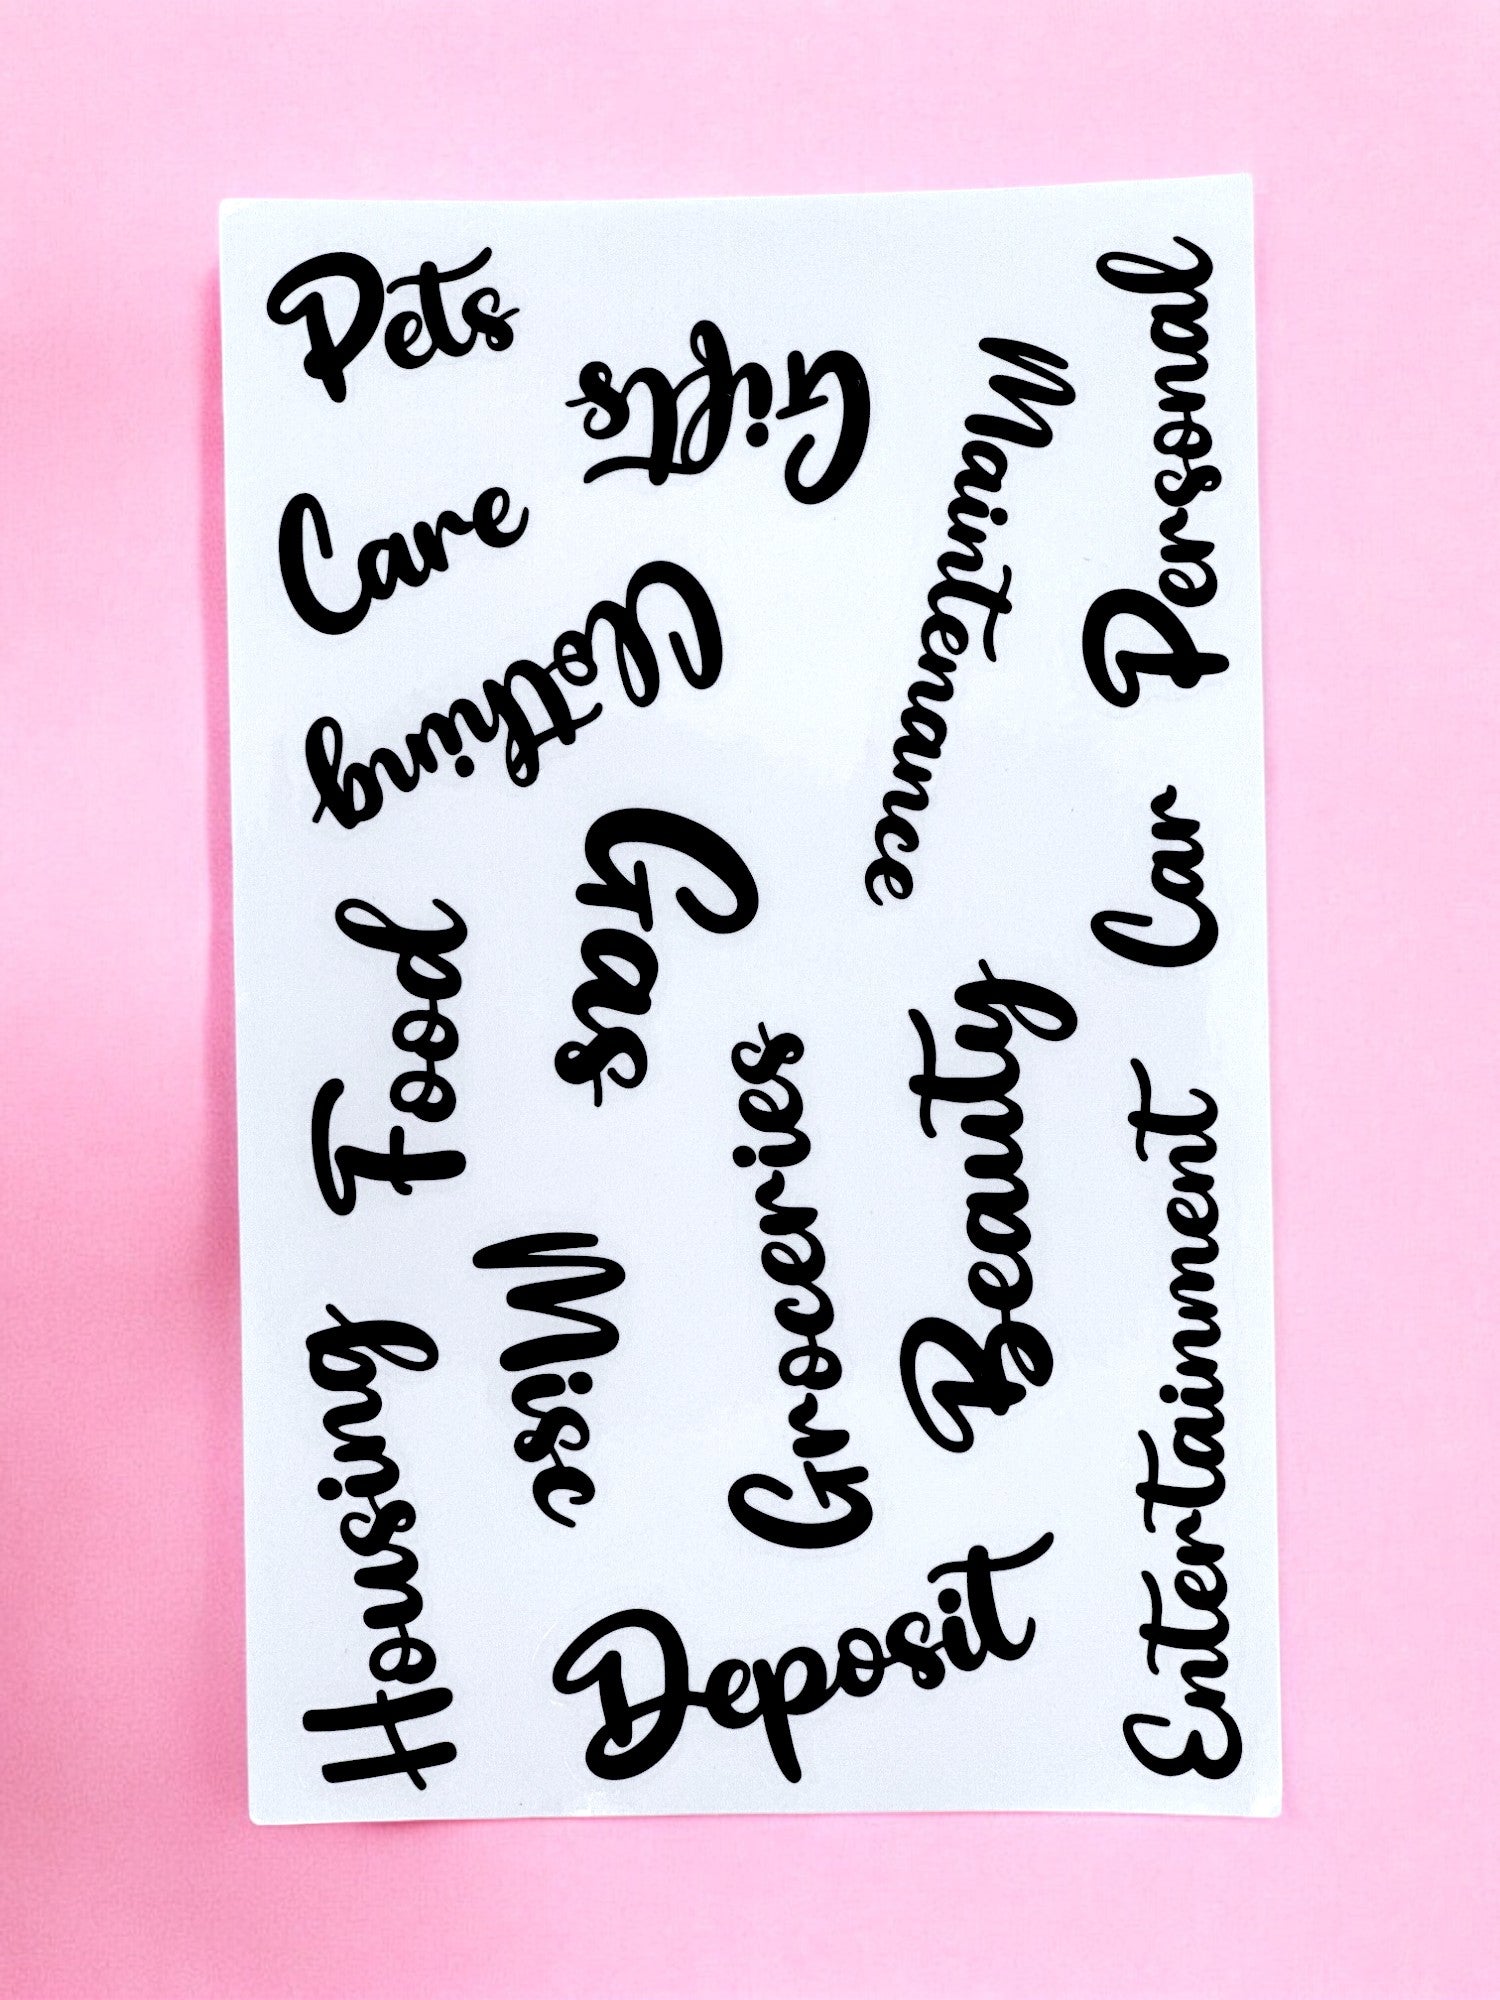 Pets
Gifts
Personal
Maintenance
Care
Clothing
Car
Gas
Food
Beauty
Groceries
Entertainment
Misc
Housing
Deposit